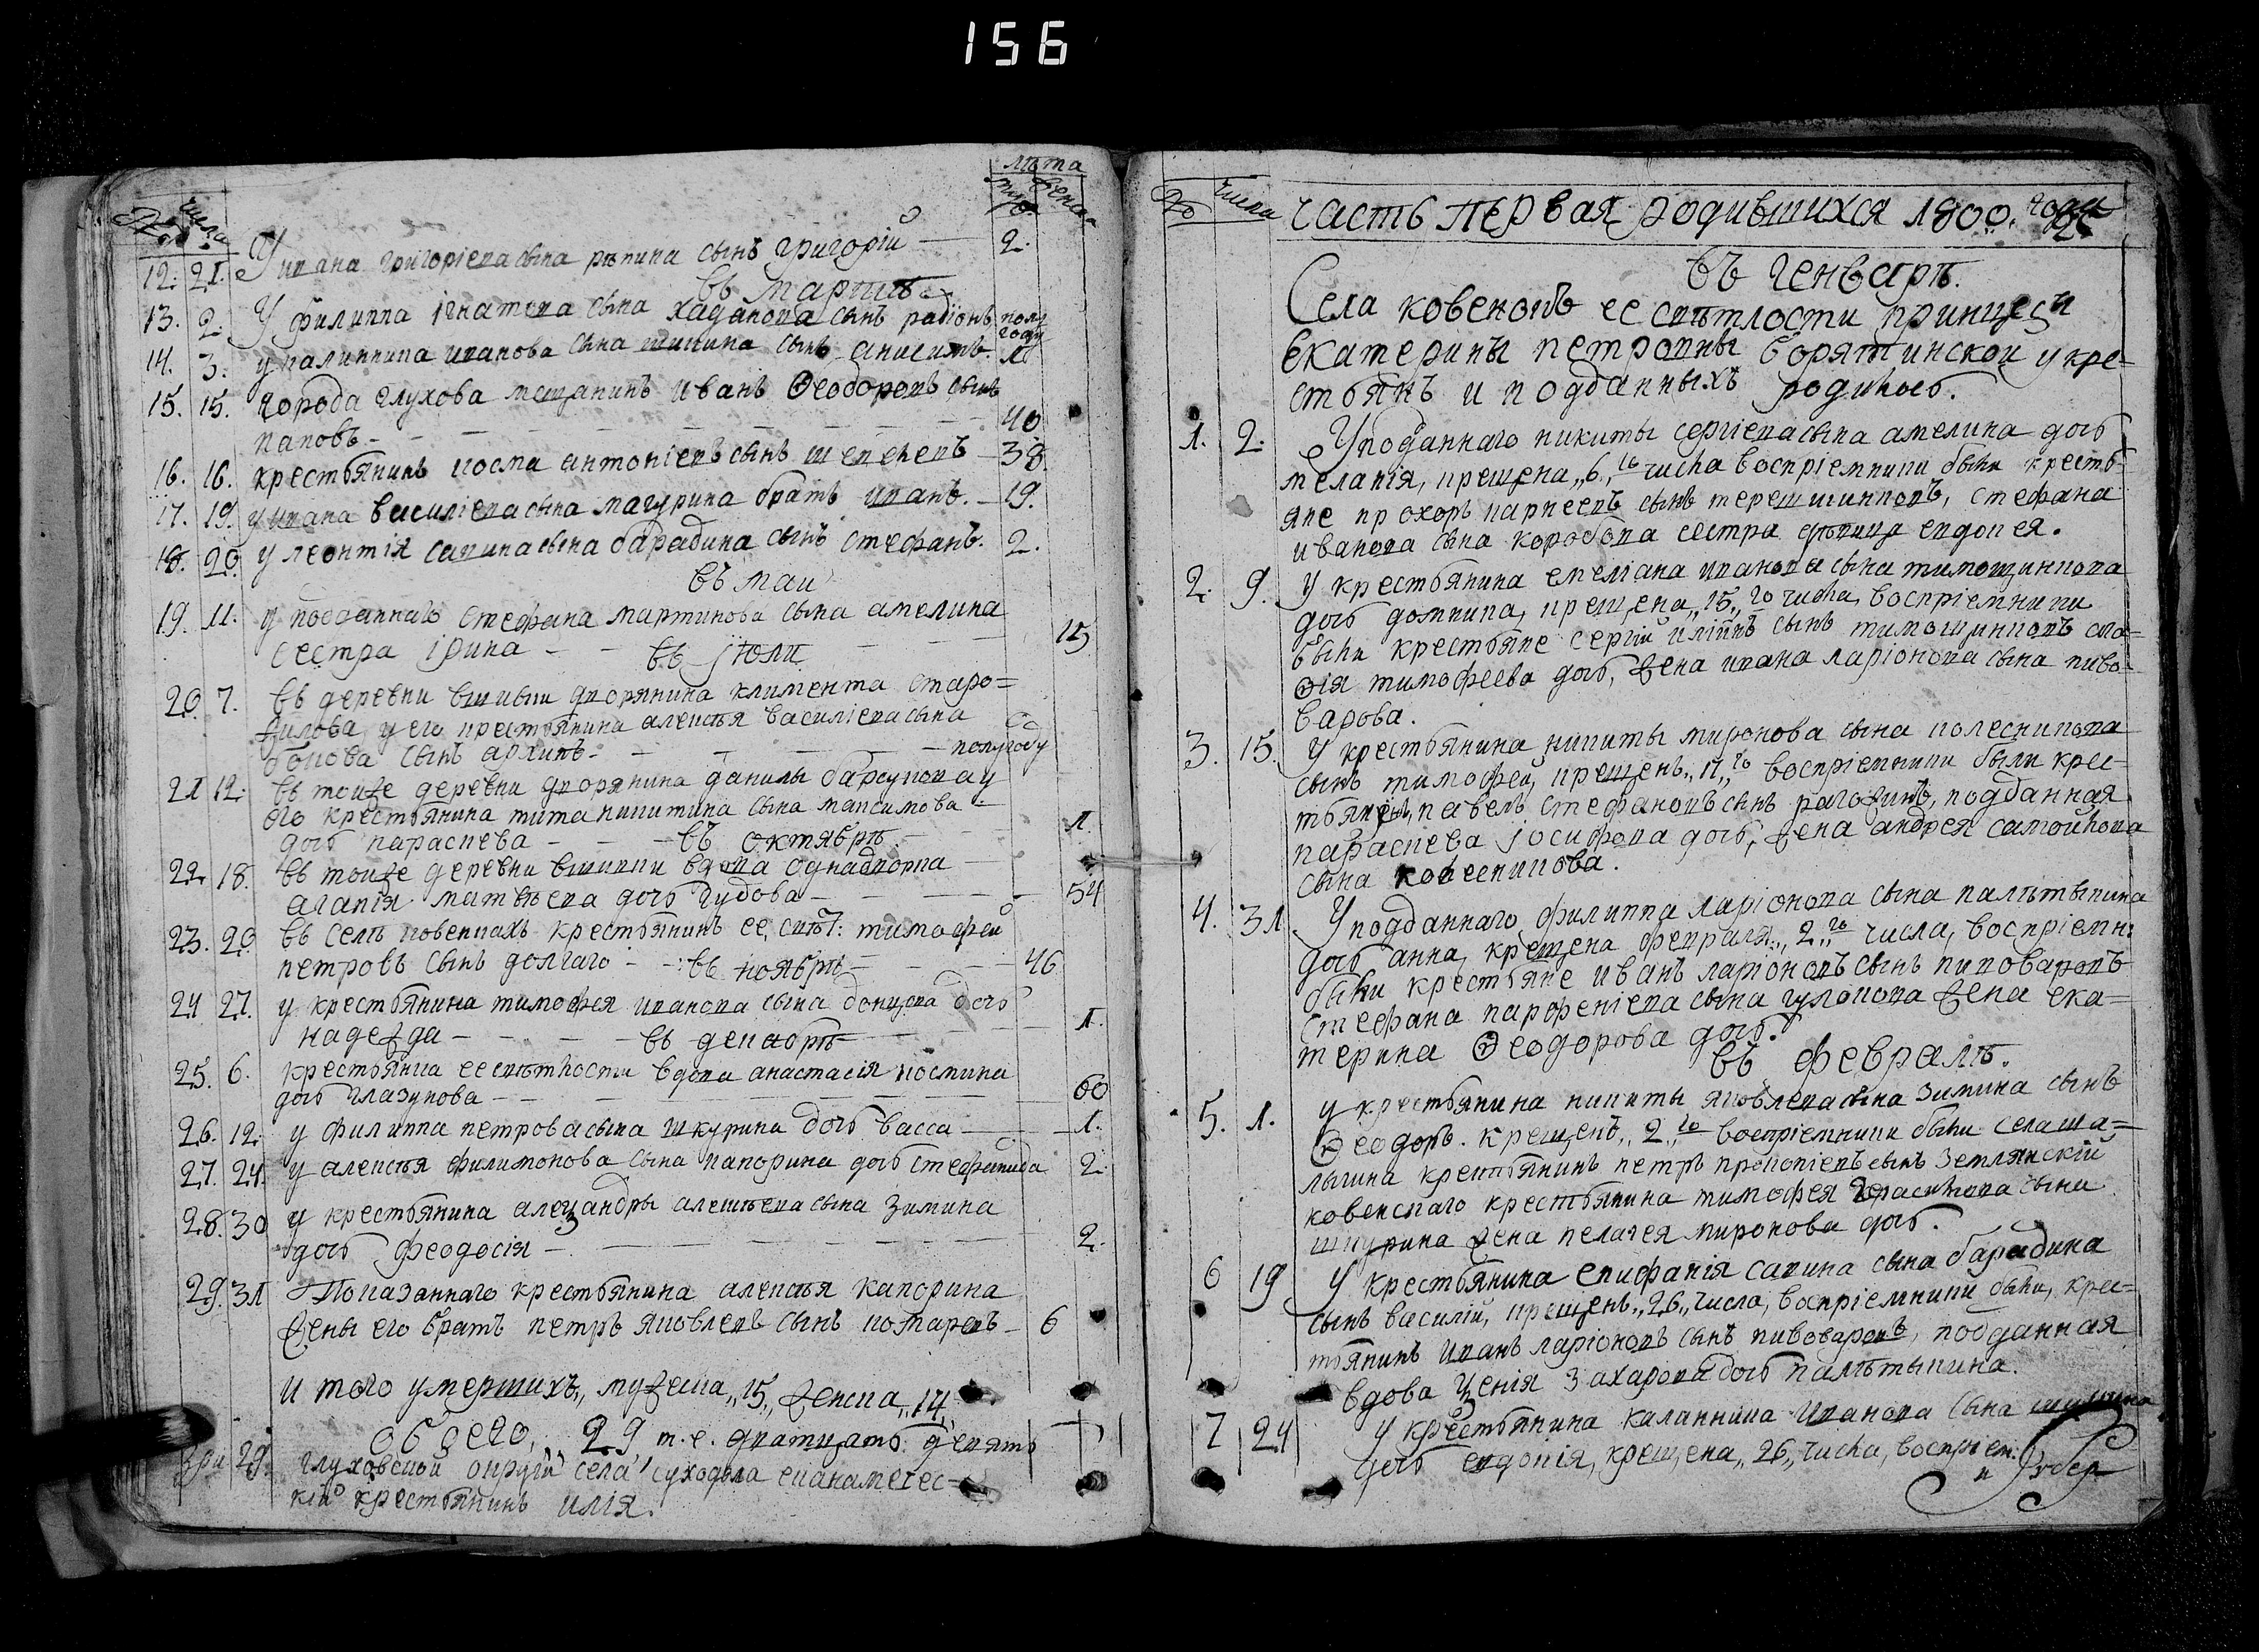 156
лѣта
№ числа муж женска
12. 21. У ивана григоріева сына рѣпина сынъ григорій — 2.
въ мартѣ
13. 2. У филиппа ігнатева сына хаданова сынъ радіонъ полугода
14. 3. у калинника иванова сына шишина сынъ анисимъ. 1
15. 15. города глухова мещанинъ иванъ Ѳеодоровъ сынъ
паповъ — 40
16. 16. крестьянинъ косма антоніевъ сынъ шевелевъ — 38
17. 19. у ивана василіева сына магурина братъ иванъ. — 19.
18. 20. у леонтія савина сына барадина сынъ стефанъ. 2.
въ маи
19. 11. у подданнаго стефана мартинова сына амелина
сестра ірина — 15
въ іюли
20. 7. въ деревни вшивки дворянина климента старо=
жилова, у его крестьянина алексѣя василіева сына
бокова сынъ архипъ — полугоду
21 12. въ тойже деревни дворянина данилы барсукова у
его крестьянина тита никитина сына максимова
дочь параскева — 1.
въ октябрѣ
22. 18. въ тойже деревни вшивки вдова однадворка
агапія матвѣева дочь чудова — 54
23. 20 въ селѣ ковенкахъ крестьянинъ ее свѣт: тимофей
петровъ сынъ долгаго — 46
въ ноябрѣ
24 27. у крестьянина тимофея иванова сына донцова дочь
надежда — 1.
въ декабрѣ
25. 6. крестьянка ее свѣтлости вдова анастасія космина
дочь глазунова — 60
26. 12. у филиппа петрова сына шкурина дочь васса — 1.
27. 24. у алексѣя филимонова сына капорина дочь стефанида 2
28. 30 у крестьянина алеѯандры алексѣева сына зимина
дочь феодосія — 2.
29. 31 Показаннаго крестьянина алексѣя капорина
жены его братъ петръ яковлевъ сынъ косаревъ — 6
и того умершихъ, мужеска „15„ женска „14„
обоего, 29 т. е. дватцать девять
29. глуховской округи села суходола
кій крестьянинъ илія.
№ числа часть первая родившихся 1800. года
въ генварѣ.
Села ковенокъ ее свѣтлости принцесы
екатерины петровны борятинской у кре-
стьянъ и подданныхъ родилось.
1. 2. У подданнаго никиты сергіева сына амелина дочь
меланія, крещена „6„ го числа воспріемники были кресть-
яне прохоръ карпеевъ сынъ терешшинковъ, стефана
иванова сына коробова сестра дѣвица евдокея.
2. 9. У крестьянина емеліана иванова сына тимощинкова
дочь домника, крещена „15„ го числа, воспріемники
были крестьяне сергій иліинъ сынъ тимощинковъ
тимофеева дочь, жена ивана ларіонова сына пиво-
варова.
3. 15. У крестьянина никиты миронова сына полесникова
сынъ тимофей, крещенъ „17„ го воспріемники были крес-
тьянинъ павелъ стефановъ сынъ рагожинъ, подданная
параскева іосифова дочь, жена андрея самойлова
сына
4. 31. У подданнаго филиппа ларіонова сына калѣтыкина
дочь анна, крещена февраля „2„ го числа, воспріемн:
были крестьяне иванъ ларіоновъ сынъ пивоваровъ
стефана парфеніева сына жена ека=
терина Ѳеодорова дочь.
въ февралѣ.
5. 1. у крестьянина никиты яковлева сына зимина сынъ
Ѳеодоръ. крещенъ „2„ го воспріемники были села ша=
лыгина крестьянинъ петръ прокопіевъ сынъ землянскій
ковенскаго крестьянина тимофея герасимова сына
шкурина жена пелагея миронова дочь.
6 19 У крестьянина епифанія савина сына барадина
сынъ василій, крещенъ „26„ числа, воспріемники были, крес=
тьянинъ иванъ ларіоновъ сынъ пивоваровъ, подданная
вдова ѯенія захарова дочь калѣтыкина.
7 24 У крестьянина каланника иванова сына шишина
дочь евдокія, крещена „26„ числа, воспріем: